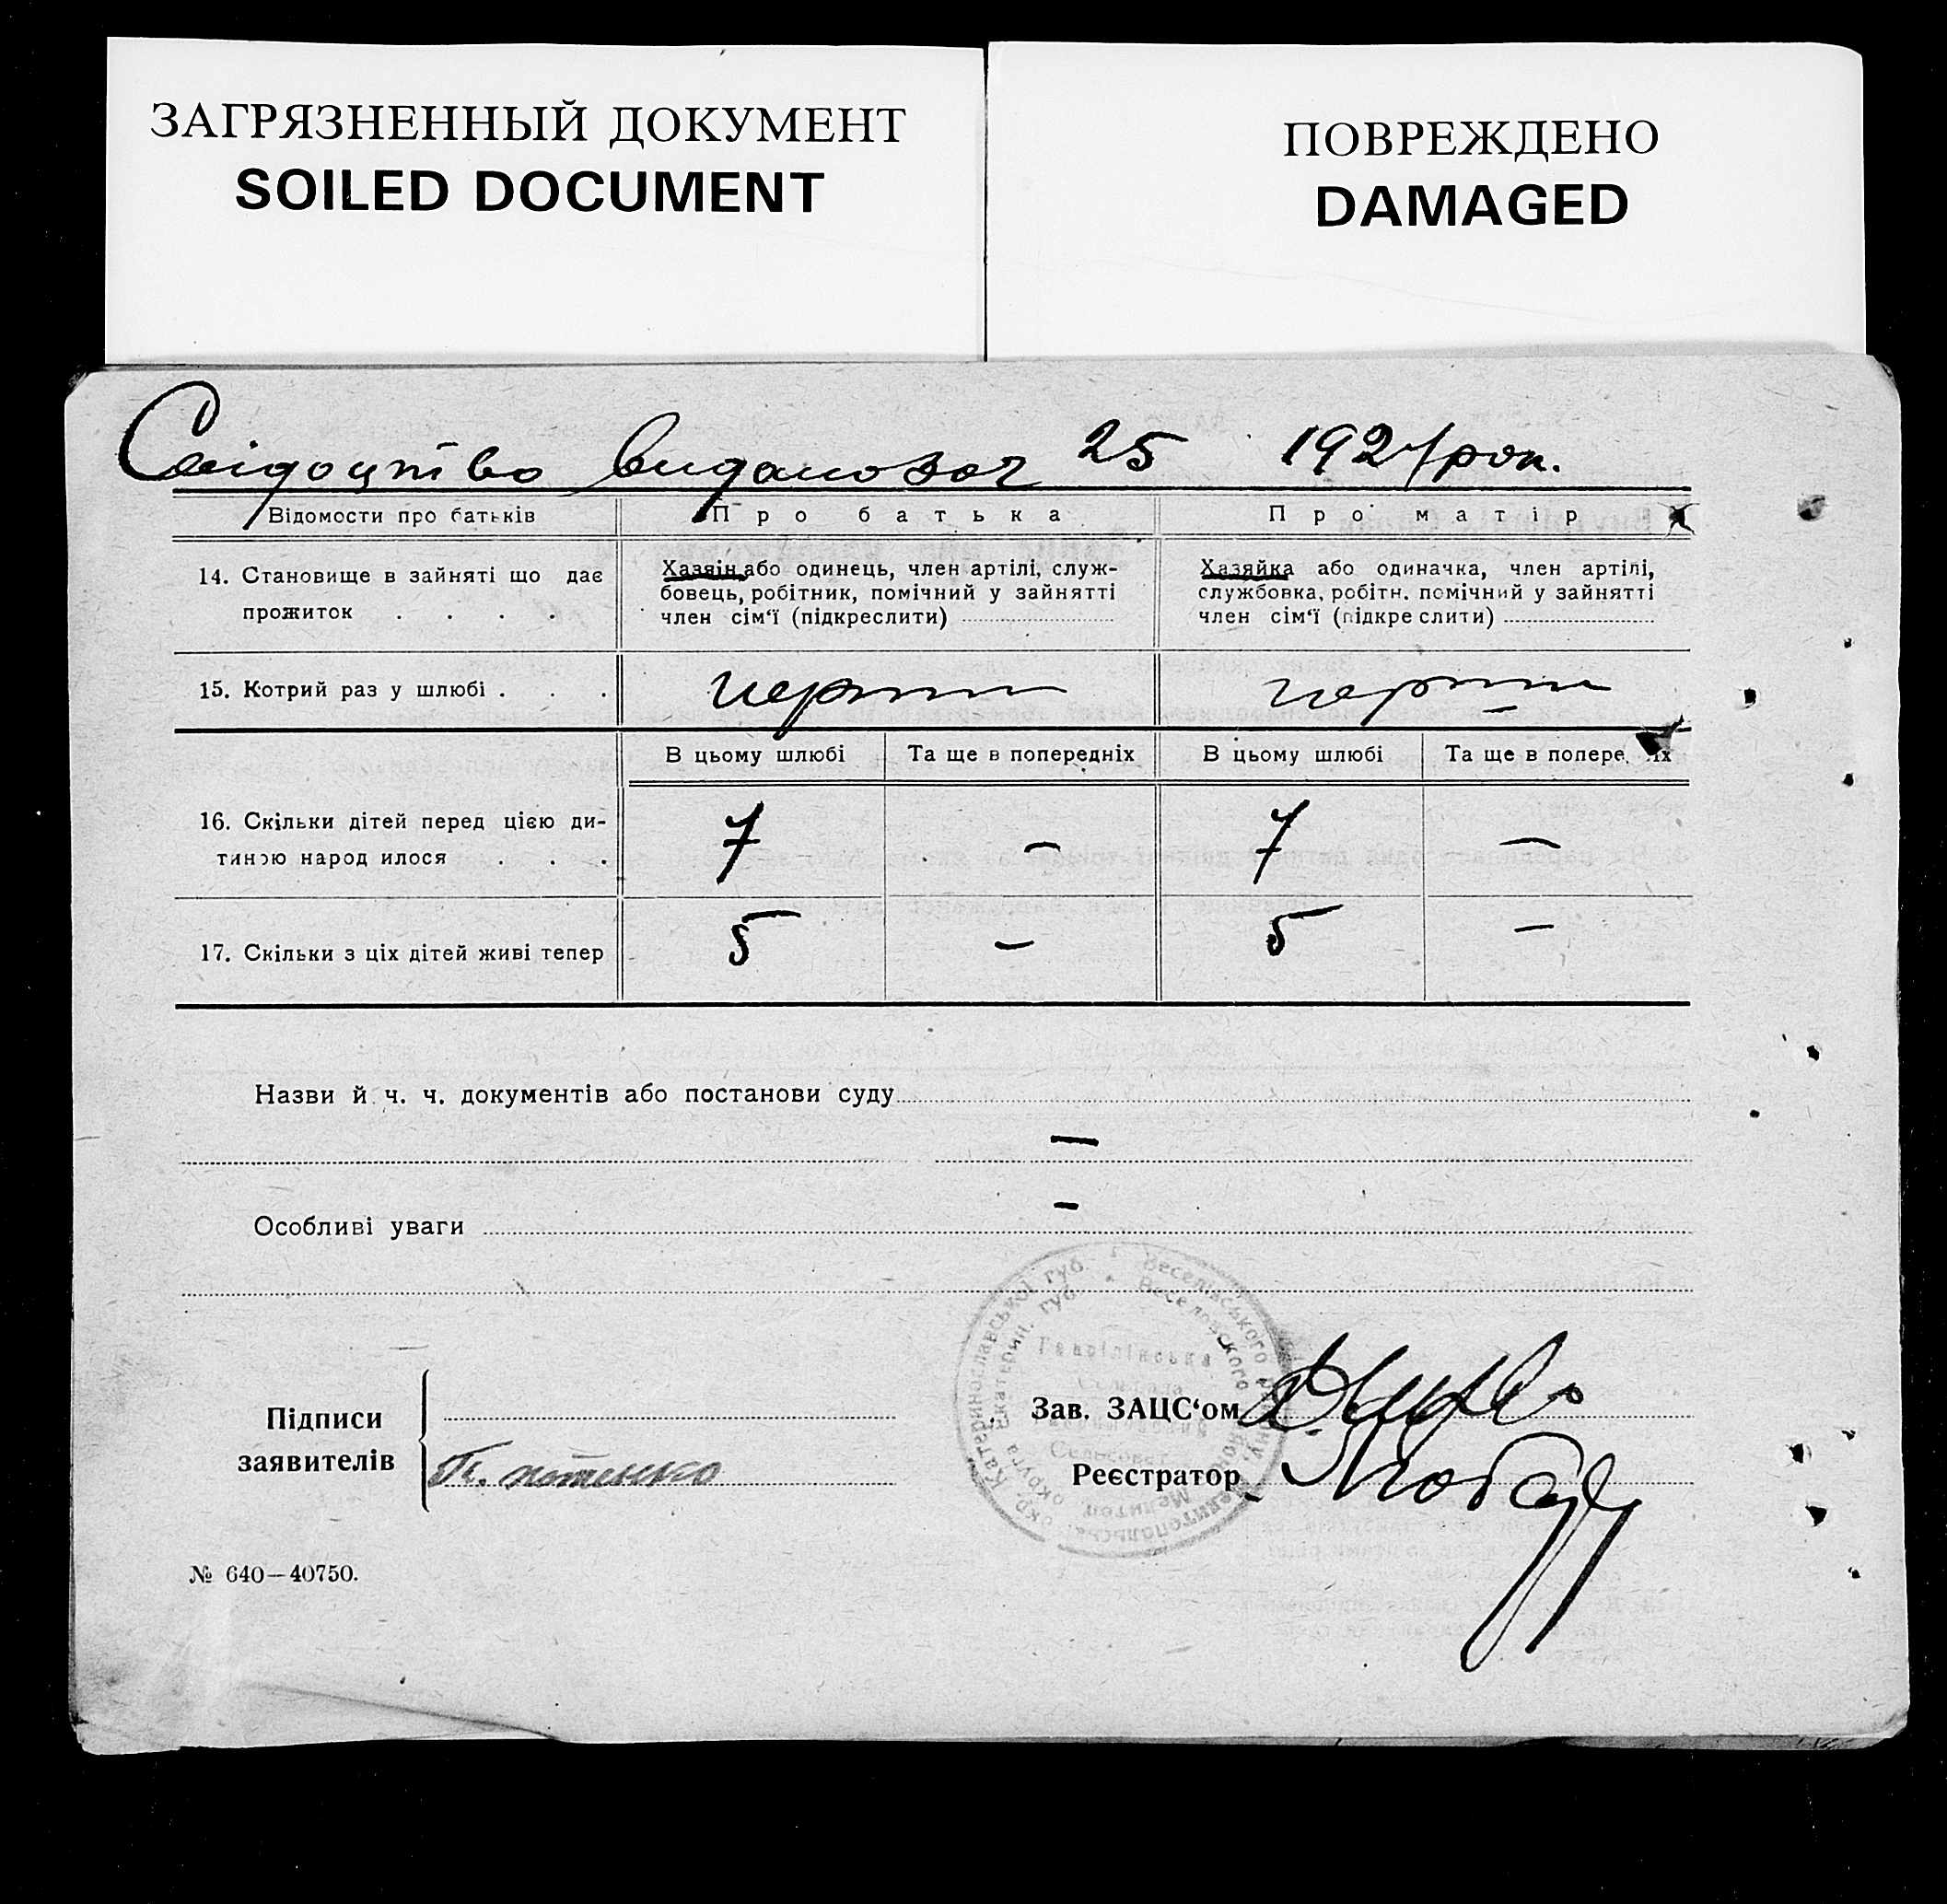 ЗАГРЯЗНЕННЫЙ ДОКУМЕНТ
SOILED DOCUMENT
ПОВРЕЖДЕНО
DAMAGED
Свідоцтво видано 25 192
Відомости про батьків
Про батька
Про матір
14. Становище в зайняті що дає
прожиток . . . .
Хазяін або одинець, член артілі, служ-
бовець, робітник, помічний у зайнятті
член сім‘ї (підкреслити)
Хазяйка або одиначка, член артілі,
службовка, робітн. помічний у зайнятті
член сім‘ї (підкреслити)
15. Котрий раз у шлюбі . . .
В цьому шлюбі
Та ще в попередніх
В цьому шлюбі
Та ще в попере их
16. Скільки дітей перед цією ди-
тиною народилося . . .
7
—
7
—
17. Скільки з ціх дітей живі тепер
5
—
5
—
Назви й ч. ч. документів або постанови суду
—
Особливі уваги
—
Катеринославської губ. * Веселівського району, Мелитопольськ. окр.
Екатерин. губ. * Веселовского Мелитоп. округа
Підписи
заявителів
Зав. ЗАЦС‘ом
Реєстратор
№ 640—40750.